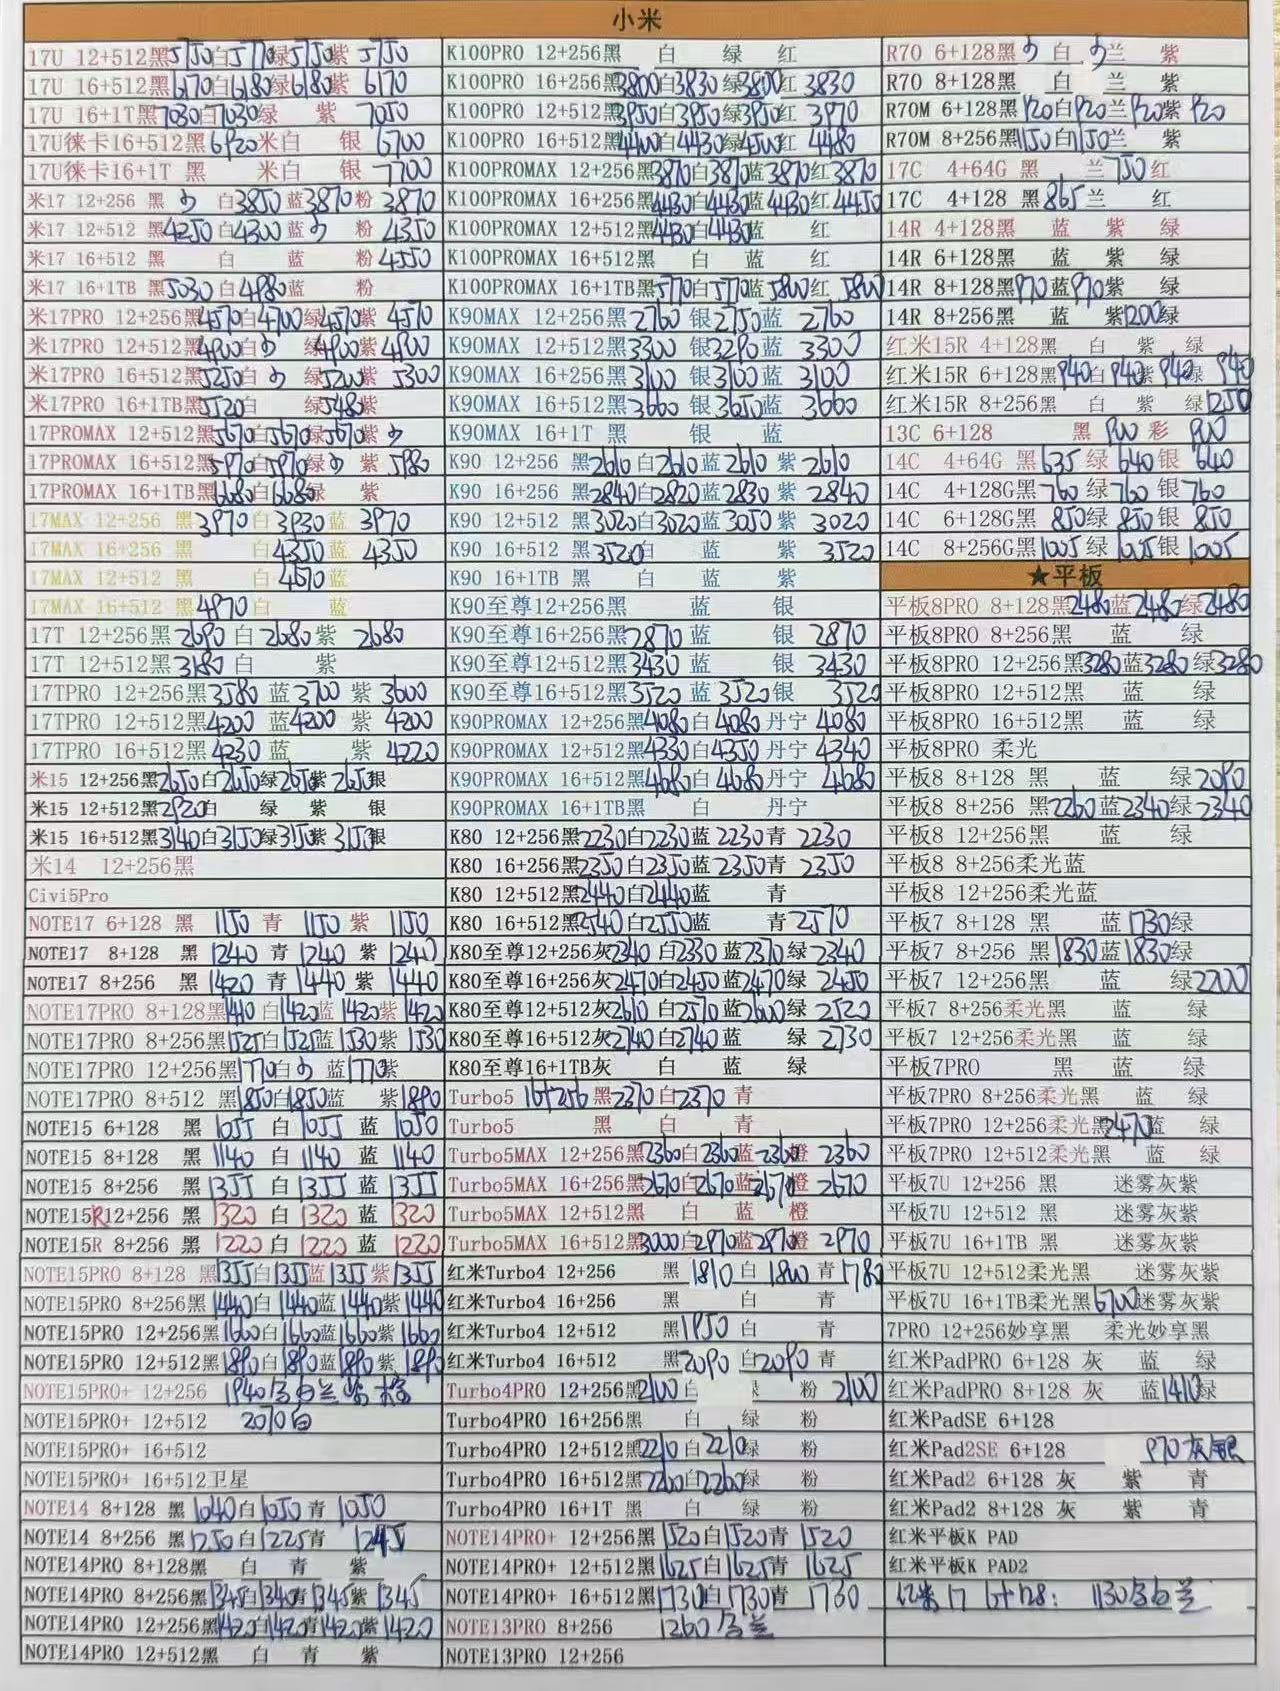 小米
17U 12+512黑5750白5770绿5750紫 5750
17U 16+512黑6170白6180绿6180紫 6170
17U 16+1T黑7030白7030绿 紫 7050
17U徕卡16+512黑6920米白 银 6700
17U徕卡16+1T 黑 米白 银 7700
米17 12+256 黑 少 白3850蓝3870粉 3870
米17 12+512 黑4250白4300蓝少 粉 4350
米17 16+512 黑 白 蓝 粉4550
米17 16+1TB 黑5030白4980蓝 粉
米17PRO 12+256黑4570白4700绿4570紫 4570
米17PRO 12+512黑4900白少 绿4900紫4900
米17PRO 16+512黑5250白少 绿5200紫 5300
米17PRO 16+1TB黑5520白 绿5480紫
17PROMAX 12+512黑5670白5670绿5670紫 少
17PROMAX 16+512黑5970白5970绿少 紫 5980
17PROMAX 16+1TB黑6680白6680绿 紫
17MAX 12+256 黑3970白 3930蓝 3970
17MAX 16+256 黑 白4350蓝 4350
17MAX 12+512 黑 白 4670蓝
17MAX 16+512 黑4970白 蓝
17T 12+256黑2690 白 2680紫 2680
17T 12+512黑3180 白 紫
17TPRO 12+256黑3580 蓝 3700 紫 3600
17TPRO 12+512黑4200 蓝4200 紫 4200
17TPRO 16+512黑4230 蓝 紫 4220
米15 12+256黑2650白2650绿2650紫2650银
米15 12+512黑2920白 绿 紫 银
米15 16+512黑3140白3150绿3150紫3150银
米14 12+256黑
Civi5Pro
NOTE17 6+128 黑 1150 青 1150 紫 1150
NOTE17 8+128 黑 1240 青 1240 紫 1240
NOTE17 8+256 黑 1420 青 1440 紫 1440
NOTE17PRO 8+128黑1410 白1420蓝 1420紫 1420
NOTE17PRO 8+256黑1525白1525蓝 1530紫 1530
NOTE17PRO 12+256黑1770白少 蓝1770紫
NOTE17PRO 8+512 黑1850白1850蓝 紫1890
NOTE15 6+128 黑 1055 白 1055 蓝 1050
NOTE15 8+128 黑 1140 白 1140 蓝 1140
NOTE15 8+256 黑 1355 白 1355 蓝 1355
NOTE15R12+256 黑 1320 白 1320 蓝 1320
NOTE15R 8+256 黑 1220 白 1220 蓝 1220
NOTE15PRO 8+128 黑1355白1355蓝1355紫1355
NOTE15PRO 8+256黑1440白1440蓝1440紫1440
NOTE15PRO 12+256黑1660白1660蓝1660紫1660
NOTE15PRO 12+512黑1890白1890蓝1890紫1890
NOTE15PRO+ 12+256 1940 白兰紫
NOTE15PRO+ 12+512 2070白
NOTE15PRO+ 16+512
NOTE15PRO+ 16+512卫星
NOTE14 8+128 黑 1040白1050青 1050
NOTE14 8+256 黑1250白1225青 1245
NOTE14PRO 8+128黑 白 青 紫
NOTE14PRO 8+256黑1345白1340青1345紫1345
NOTE14PRO 12+256黑1420白1420青1420紫1420
NOTE14PRO 12+512黑 白 青 紫
K100PRO 12+256黑 白 绿 红
K100PRO 16+256黑3800白3830绿3800红 3830
K100PRO 12+512黑3950白3950绿3950红 3970
K100PRO 16+512黑4400白4430绿4500红 4480
K100PROMAX 12+256黑3870白3870蓝3870红3870
K100PROMAX 16+256黑4430白4430蓝4430红4450
K100PROMAX 12+512黑4430白4430蓝 红
K100PROMAX 16+512黑 白 蓝 红
K100PROMAX 16+1TB黑5770白5770蓝5800红 5800
K90MAX 12+256黑2760 银2750蓝 2760
K90MAX 12+512黑3300 银3290蓝 3300
K90MAX 16+256黑3100 银3100蓝 3100
K90MAX 16+512黑3660 银3650蓝 3660
K90MAX 16+1T 黑 银 蓝
K90 12+256 黑2610白2610蓝2610 紫 2610
K90 16+256 黑2840白2820蓝2830 紫 2840
K90 12+512 黑3020白3020蓝3050 紫 3020
K90 16+512 黑3520白 蓝 紫 3520
K90 16+1TB 黑 白 蓝 紫
K90至尊12+256黑 蓝 银
K90至尊16+256黑2870蓝 银 2870
K90至尊12+512黑3430蓝 银 3430
K90至尊16+512黑3520蓝3520银 3520
K90PROMAX 12+256黑4080白4080丹宁 4080
K90PROMAX 12+512黑4330白4350丹宁 4340
K90PROMAX 16+512黑4680白4680丹宁 4680
K90PROMAX 16+1TB黑 白 丹宁
K80 12+256黑2230白2230蓝2230青 2230
K80 16+256黑2350白2350蓝2350青 2350
K80 12+512黑2440白2440蓝 青
K80 16+512黑2540白2550蓝 青2570
K80至尊12+256灰2340 白2330 蓝2370绿 2340
K80至尊16+256灰2470白2450 蓝2470绿 2450
K80至尊12+512灰2610 白2570 蓝2600绿 2520
K80至尊16+512灰2740白2740蓝 绿 2730
K80至尊16+1TB灰 白 蓝 绿
Turbo5 16+256黑2370白2370 青
Turbo5 黑 白 青
Turbo5MAX 12+256黑2360白2360蓝2360橙 2360
Turbo5MAX 16+256黑2670白2670蓝2670橙 2670
Turbo5MAX 12+512黑 白 蓝 橙
Turbo5MAX 16+512黑3000白2970蓝2970橙 2970
红米Turbo4 12+256 黑 1810白 1800青1780
红米Turbo4 16+256 黑 白 青
红米Turbo4 12+512 黑1950白 青
红米Turbo4 16+512 黑2090 白2090青
Turbo4PRO 12+256黑2100白 绿 粉 2100
Turbo4PRO 16+256黑 白 绿 粉
Turbo4PRO 12+512黑2210白2210绿 粉
Turbo4PRO 16+512黑2260白2260绿 粉
Turbo4PRO 16+1T 黑 白 绿 粉
NOTE14PRO+ 12+256黑1520白1520青 1520
NOTE14PRO+ 12+512黑1625白1625青 1625
NOTE14PRO+ 16+512黑1730白1730青 1730
NOTE13PRO 8+256 1260 兰
NOTE13PRO 12+256
R70 6+128黑少 白 少兰 紫
R70 8+128黑 白 兰 紫
R70M 6+128黑920白920兰920紫920
R70M 8+256黑1150白1150兰 紫
17C 4+64G 黑 兰750红
17C 4+128 黑865兰 红
14R 4+128黑 蓝 紫 绿
14R 6+128黑 蓝 紫 绿
14R 8+128黑970蓝970紫 绿
14R 8+256黑 蓝 紫1200绿
红米15R 4+128黑 白 紫 绿
红米15R 6+128黑940白940紫940绿 940
红米15R 8+256黑 白 紫 绿1250
13C 6+128 黑 900 彩 900
14C 4+64G 黑635绿 640银 640
14C 4+128G黑760 绿760银760
14C 6+128G黑 850绿 850银 850
14C 8+256G黑1005绿1005银1005
★平板
平板8PRO 8+128黑2480蓝2480绿2480
平板8PRO 8+256黑 蓝 绿
平板8PRO 12+256黑3280蓝3280绿3280
平板8PRO 12+512黑 蓝 绿
平板8PRO 16+512黑 蓝 绿
平板8PRO 柔光
平板8 8+128 黑 蓝 绿2090
平板8 8+256 黑2260蓝2340绿2340
平板8 12+256黑 蓝 绿
平板8 8+256柔光蓝
平板8 12+256柔光蓝
平板7 8+128 黑 蓝1730绿
平板7 8+256 黑1830蓝1830绿
平板7 12+256黑 蓝 绿2200
平板7 8+256柔光黑 蓝 绿
平板7 12+256柔光黑 蓝 绿
平板7PRO 黑 蓝 绿
平板7PRO 8+256柔光黑 蓝 绿
平板7PRO 12+256柔光黑2470蓝 绿
平板7PRO 12+512柔光黑 蓝 绿
平板7U 12+256 黑 迷雾灰紫
平板7U 12+512 黑 迷雾灰紫
平板7U 16+1TB 黑 迷雾灰紫
平板7U 12+512柔光黑 迷雾灰紫
平板7U 16+1TB柔光黑6700迷雾灰紫
7PRO 12+256妙享黑 柔光妙享黑
红米PadPRO 6+128 灰 蓝 绿
红米PadPRO 8+128 灰 蓝1410绿
红米PadSE 6+128
红米Pad2SE 6+128 970灰银
红米Pad2 6+128 灰 紫 青
红米Pad2 8+128 灰 紫 青
红米平板K PAD
红米平板K PAD2
红米17 6+128: 1130 白兰